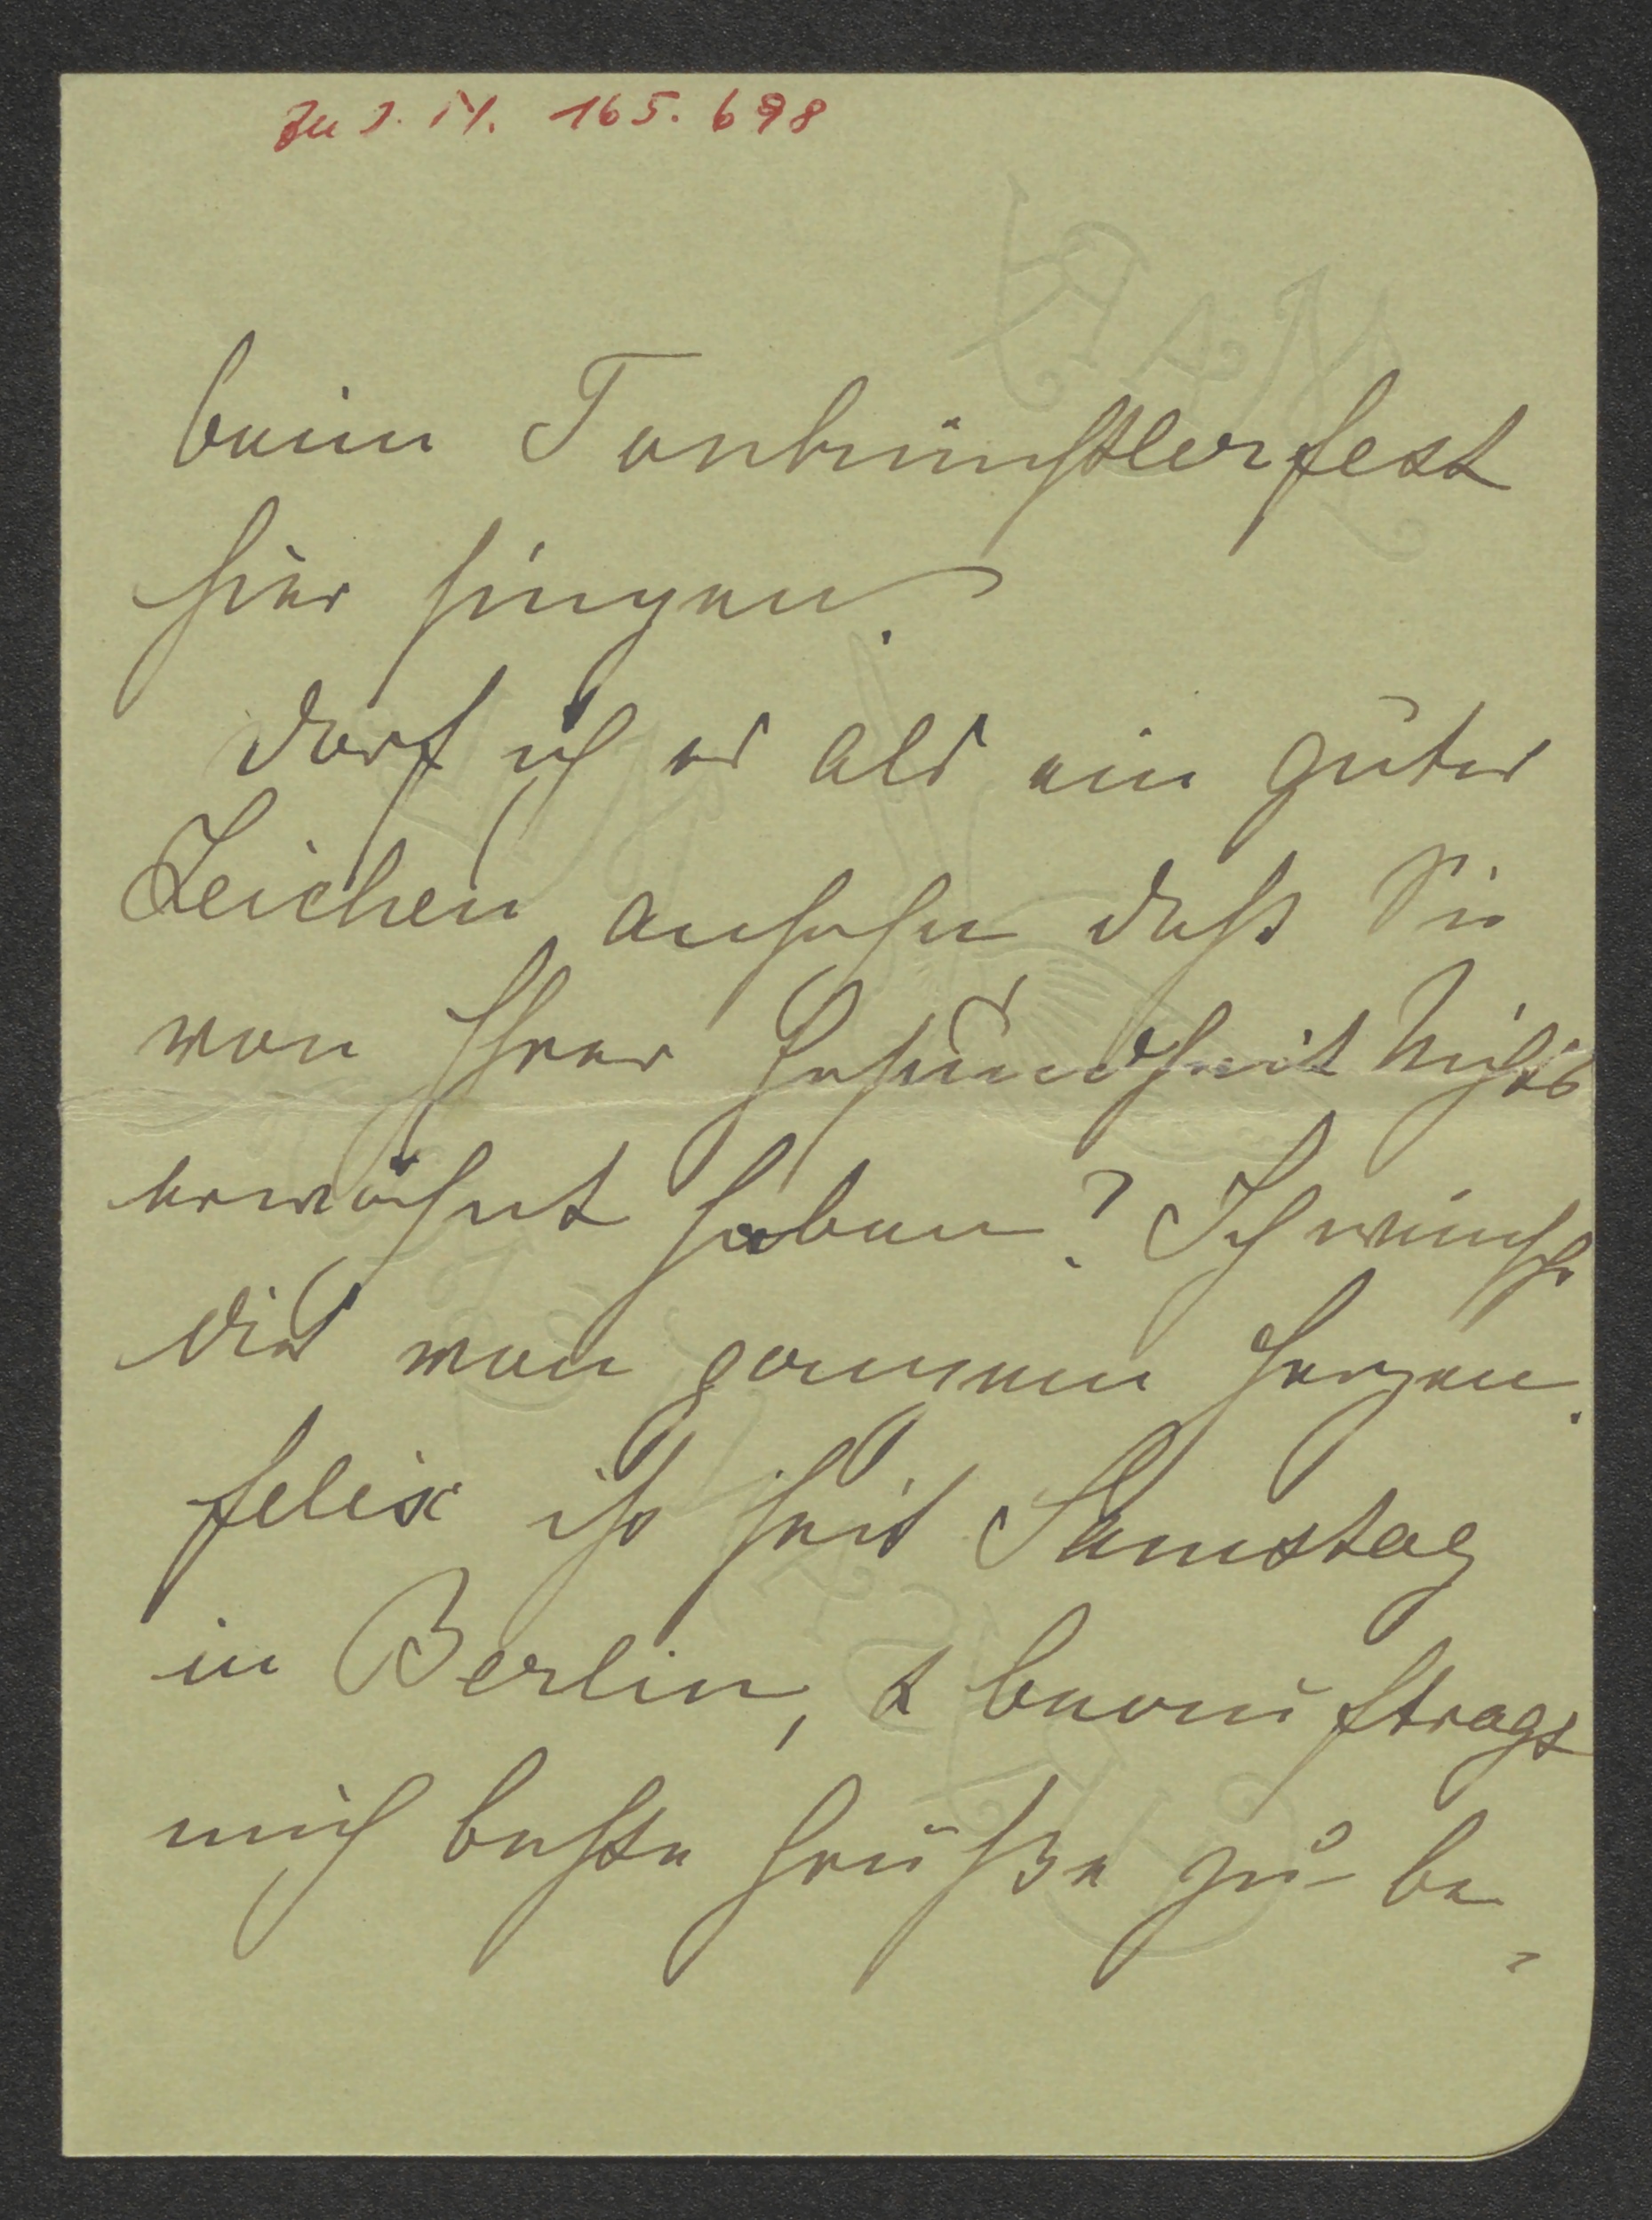 Zu I. N. 165.698
beim Tonkünstlerfest
hier singen.
Darf ich es als ein gutes
Zeichen ansehn daß Sie
von Ihrer Gesundheit Nichts
erwähnt haben? Ich wünsche
dies von ganzem Herzen.
Felix ist seit Samstag
in Berlin, & beauftragt
mich beste Grüße zu be-